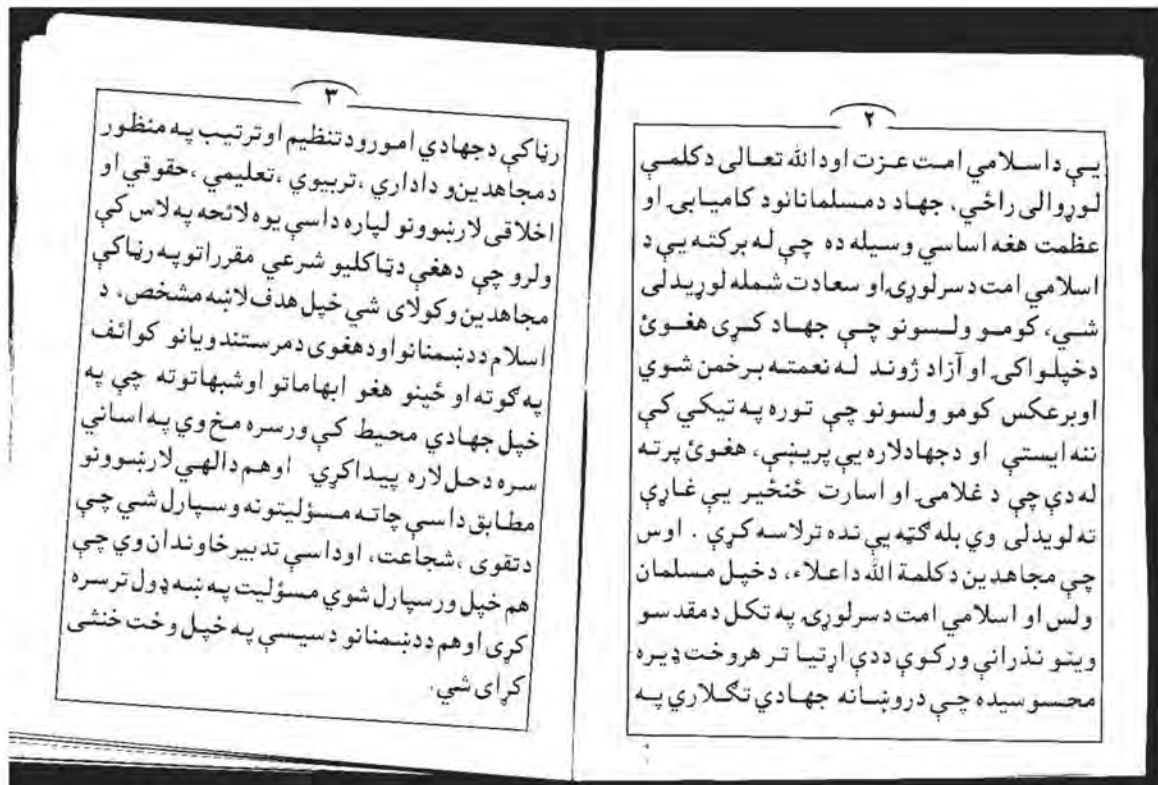 ۲
يې داسلامي امت عزت اودالله تعالی دکلمې
لوړوالی راځي، جهاد دمسلمانانود کاميابۍ او
عظمت هغه اساسي وسيله ده چې له برکته يې د
اسلامي امت دسرلوړۍاو سعادت شمله لوړيدلی
شي، کومو ولسونو چې جهاد کړی هغوئ
دخپلواکۍ او آزاد ژوند له نعمته برخمن شوي
اوبرعکس کومو ولسونو چې توره په تيکي کې
ننه ايستې او دجهادلاره يې پريښې، هغوئ پرته
له دې چې د غلامۍ او اسارت ځنځير يې غاړې
ته لويدلی وي بله ګټه يې نده ترلاسه کړې . اوس
چې مجاهدين دکلمة الله داعلاء، دخپل مسلمان
ولس او اسلامي امت دسرلوړۍ په تکل دمقدسو
وينو نذرانې ورکوي ددې اړتيا تر هروخت ډيره
محسوسيده چې دروښانه جهادي تګلارې په
۳
رڼاکې دجهادي امورودتنظيم اوترتيب په منظور
دمجاهدينو داداري ،تربيوي ،تعليمي ،حقوقي او
اخلاقی لارښوونو لپاره داسې يوه لائحه په لاس کې
ولرو چې دهغې دټاکليو شرعي مقرراتوپه رڼاکې
مجاهدين وکولای شي خپل هدف لاښه مشخص، د
اسلام ددښمنانواودهغوی دمرستندويانو کوائف
په ګوته او ځينو هغو ابهاماتو اوشبهاتوته چې په
خپل جهادي محيط کې ورسره مخ وي په اسانې
سره دحل لاره پيداکړي اوهم دالهي لارښوونو
مطابق داسې چاته مسؤليتونه وسپارل شي چې
دتقوی ،شجاعت، اوداسې تدبيرخاوندان وي چې
هم خپل ورسپارل شوي مسؤليت په ښه ډول ترسره
کړی اوهم ددښمنانو دسيسې په خپل وخت خنثی
کړای شي.